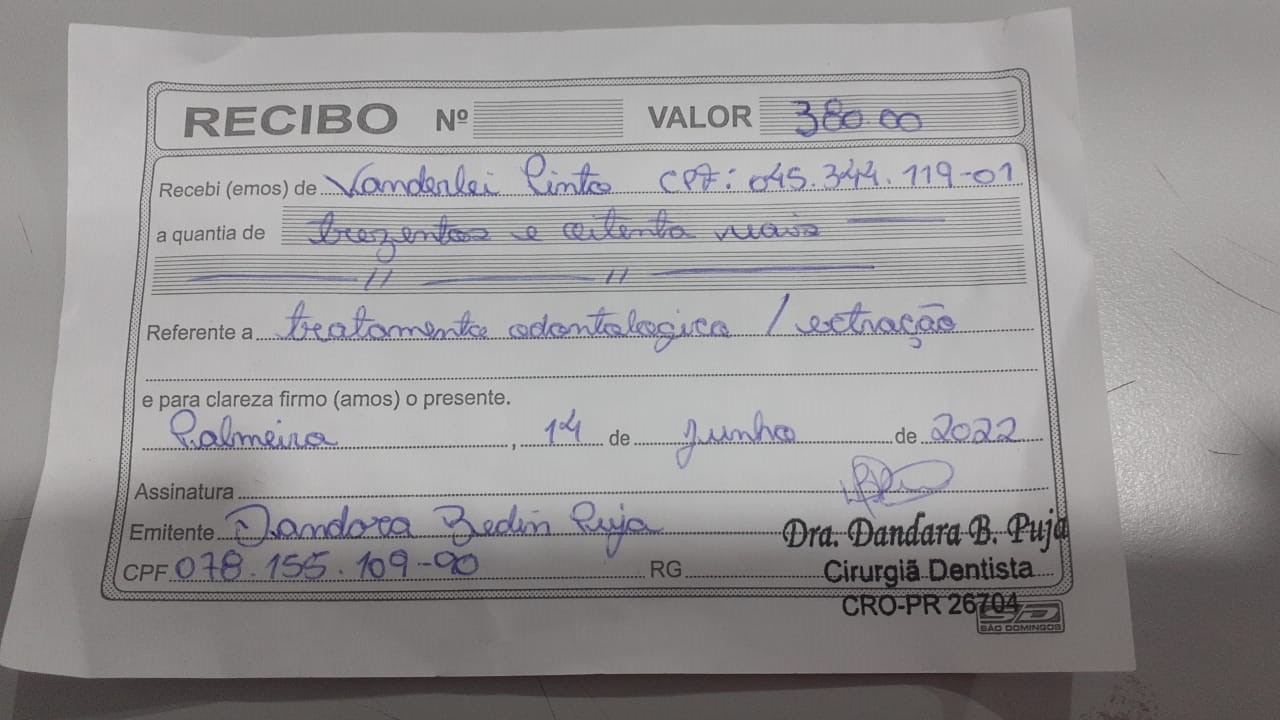 RECIBO Nº VALOR 380.00
Recebi (emos) de Vanderlei Pinto CPF: 045.344.119-01
a quantia de trezentos e oitenta reais
Referente a tratamento odontologico / extração
e para clareza firmo (amos) o presente.
Palmeira, 14 de Junho de 2022
Assinatura
Emitente Dandara Bedin Puja
Dra. Dandara B. Puja
CPF 078.155.109-90 RG
Cirurgiã Dentista
CRO-PR 26704
SD
SÃO DOMINGOS